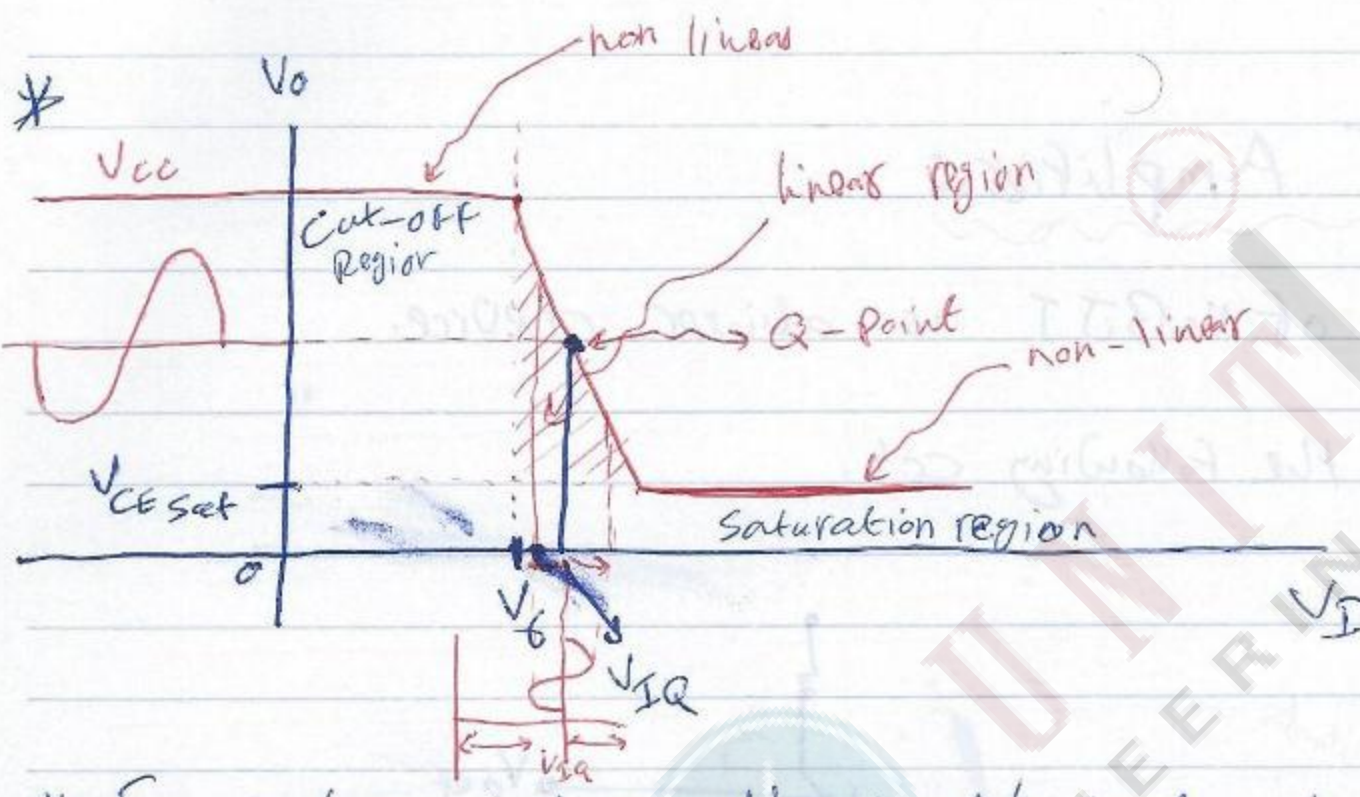 non linear
Vo
*
Vcc
Cut-off
Region
linear region
Q-Point
non-linear
VCE Sat
Saturation region
0
Vγ
VI
VIQ
VIQ
UNIT
EERIN